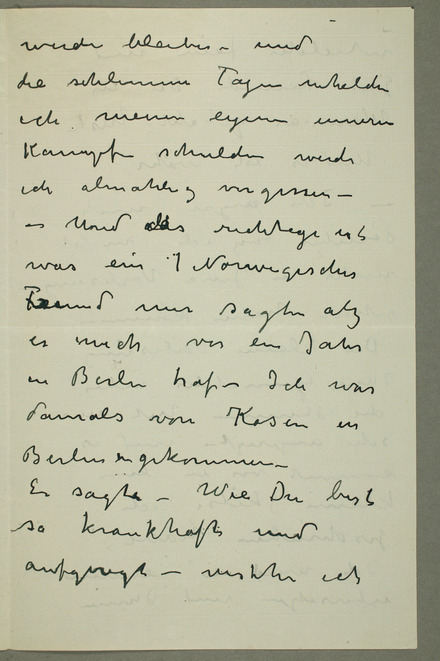 werde bleiben – und
die schlimme Tagen
ich meinen eigenen inneren
Kampfe schulden werde
ich almahlig vergessen –
es das richtige ist
was ein Norwegischer
Freund mir sagte alz
er mich vor ein Jahr
in Berlin traf – Ich war
damals von Kösen in
Berlin angekommen –
Er sagte – Wie Du bist
so krankhaft und
aufgeregt – ich